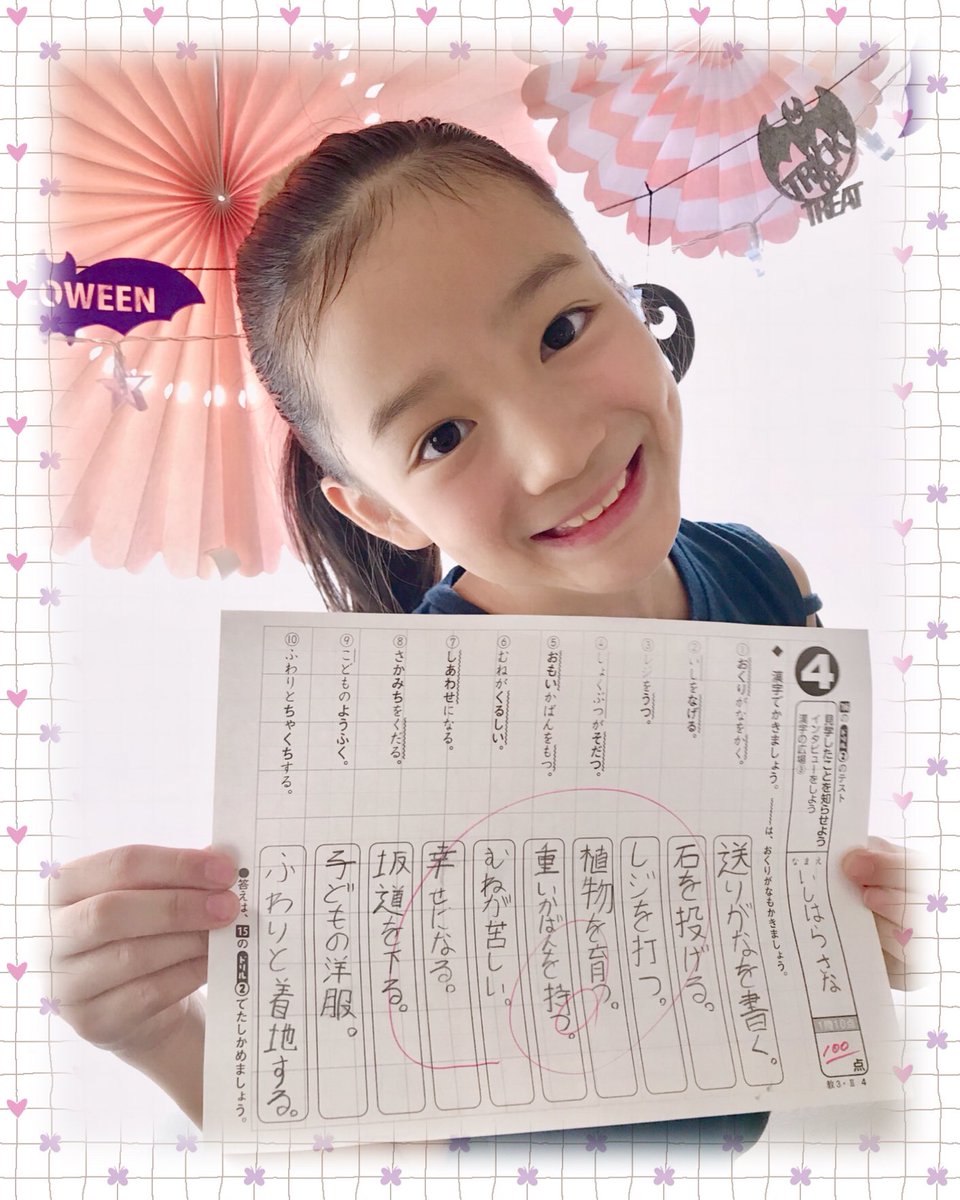 OWEEN
TRICK
OR
TREAT
4
15の ドリル2 のテスト
見学したことを知らせよう
インタビューをしよう
漢字の広場③
なまえ
いしはらさな
1問10点
100
点
教3・Ⅱ 4
◆ 漢字でかきましょう。 は、おくりがなもかきましょう。
① おくりがなをかく。
② いしをなげる。
③ レジをうつ。
④ しょくぶつがそだつ。
⑤ おもいかばんをもつ。
⑥ むねがくるしい。
⑦ しあわせになる。
⑧ さかみちをくだる。
⑨ こどものようふく。
⑩ ふわりとちゃくちする。
送りがなを書く。
石を投げる。
レジを打つ。
植物を育つ。
重いかばんを持つ。
むねが苦しい。
幸せになる。
坂道を下る。
子どもの洋服。
ふわりと着地する。
●答えは、15の ドリル2 でたしかめましょう。